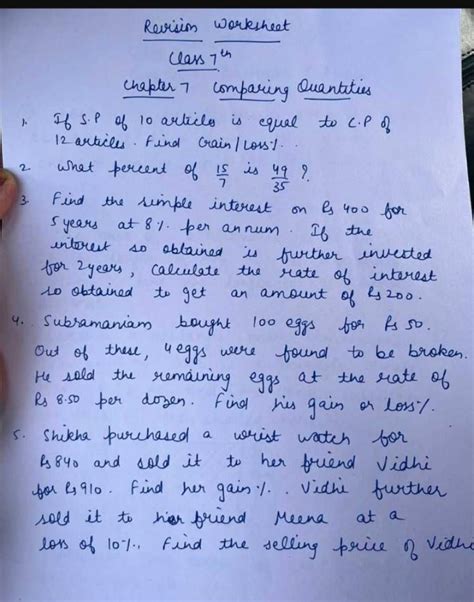 Revision Worksheet
Class 7th
Chapter 7 Comparing Quantities
1. If S.P of 10 articles is equal to C.P of
12 articles. Find Gain/Loss%.
2. What percent of 15/7 is 49/35 ?
3. Find the simple interest on Rs 400 for
5 years at 8% per annum. If the
interest so obtained is further invested
for 2 years, calculate the rate of interest
so obtained to get an amount of Rs 200.
4. Subramaniam bought 100 eggs for Rs 50.
Out of these, 4 eggs were found to be broken.
He sold the remaining eggs at the rate of
Rs 8.50 per dozen. Find his gain or loss%.
5. Shikha purchased a wrist watch for
Rs 840 and sold it to her friend Vidhi
for Rs 910. Find her gain%. Vidhi further
sold it to her friend Meena at a
loss of 10%. Find the selling price of Vidhi